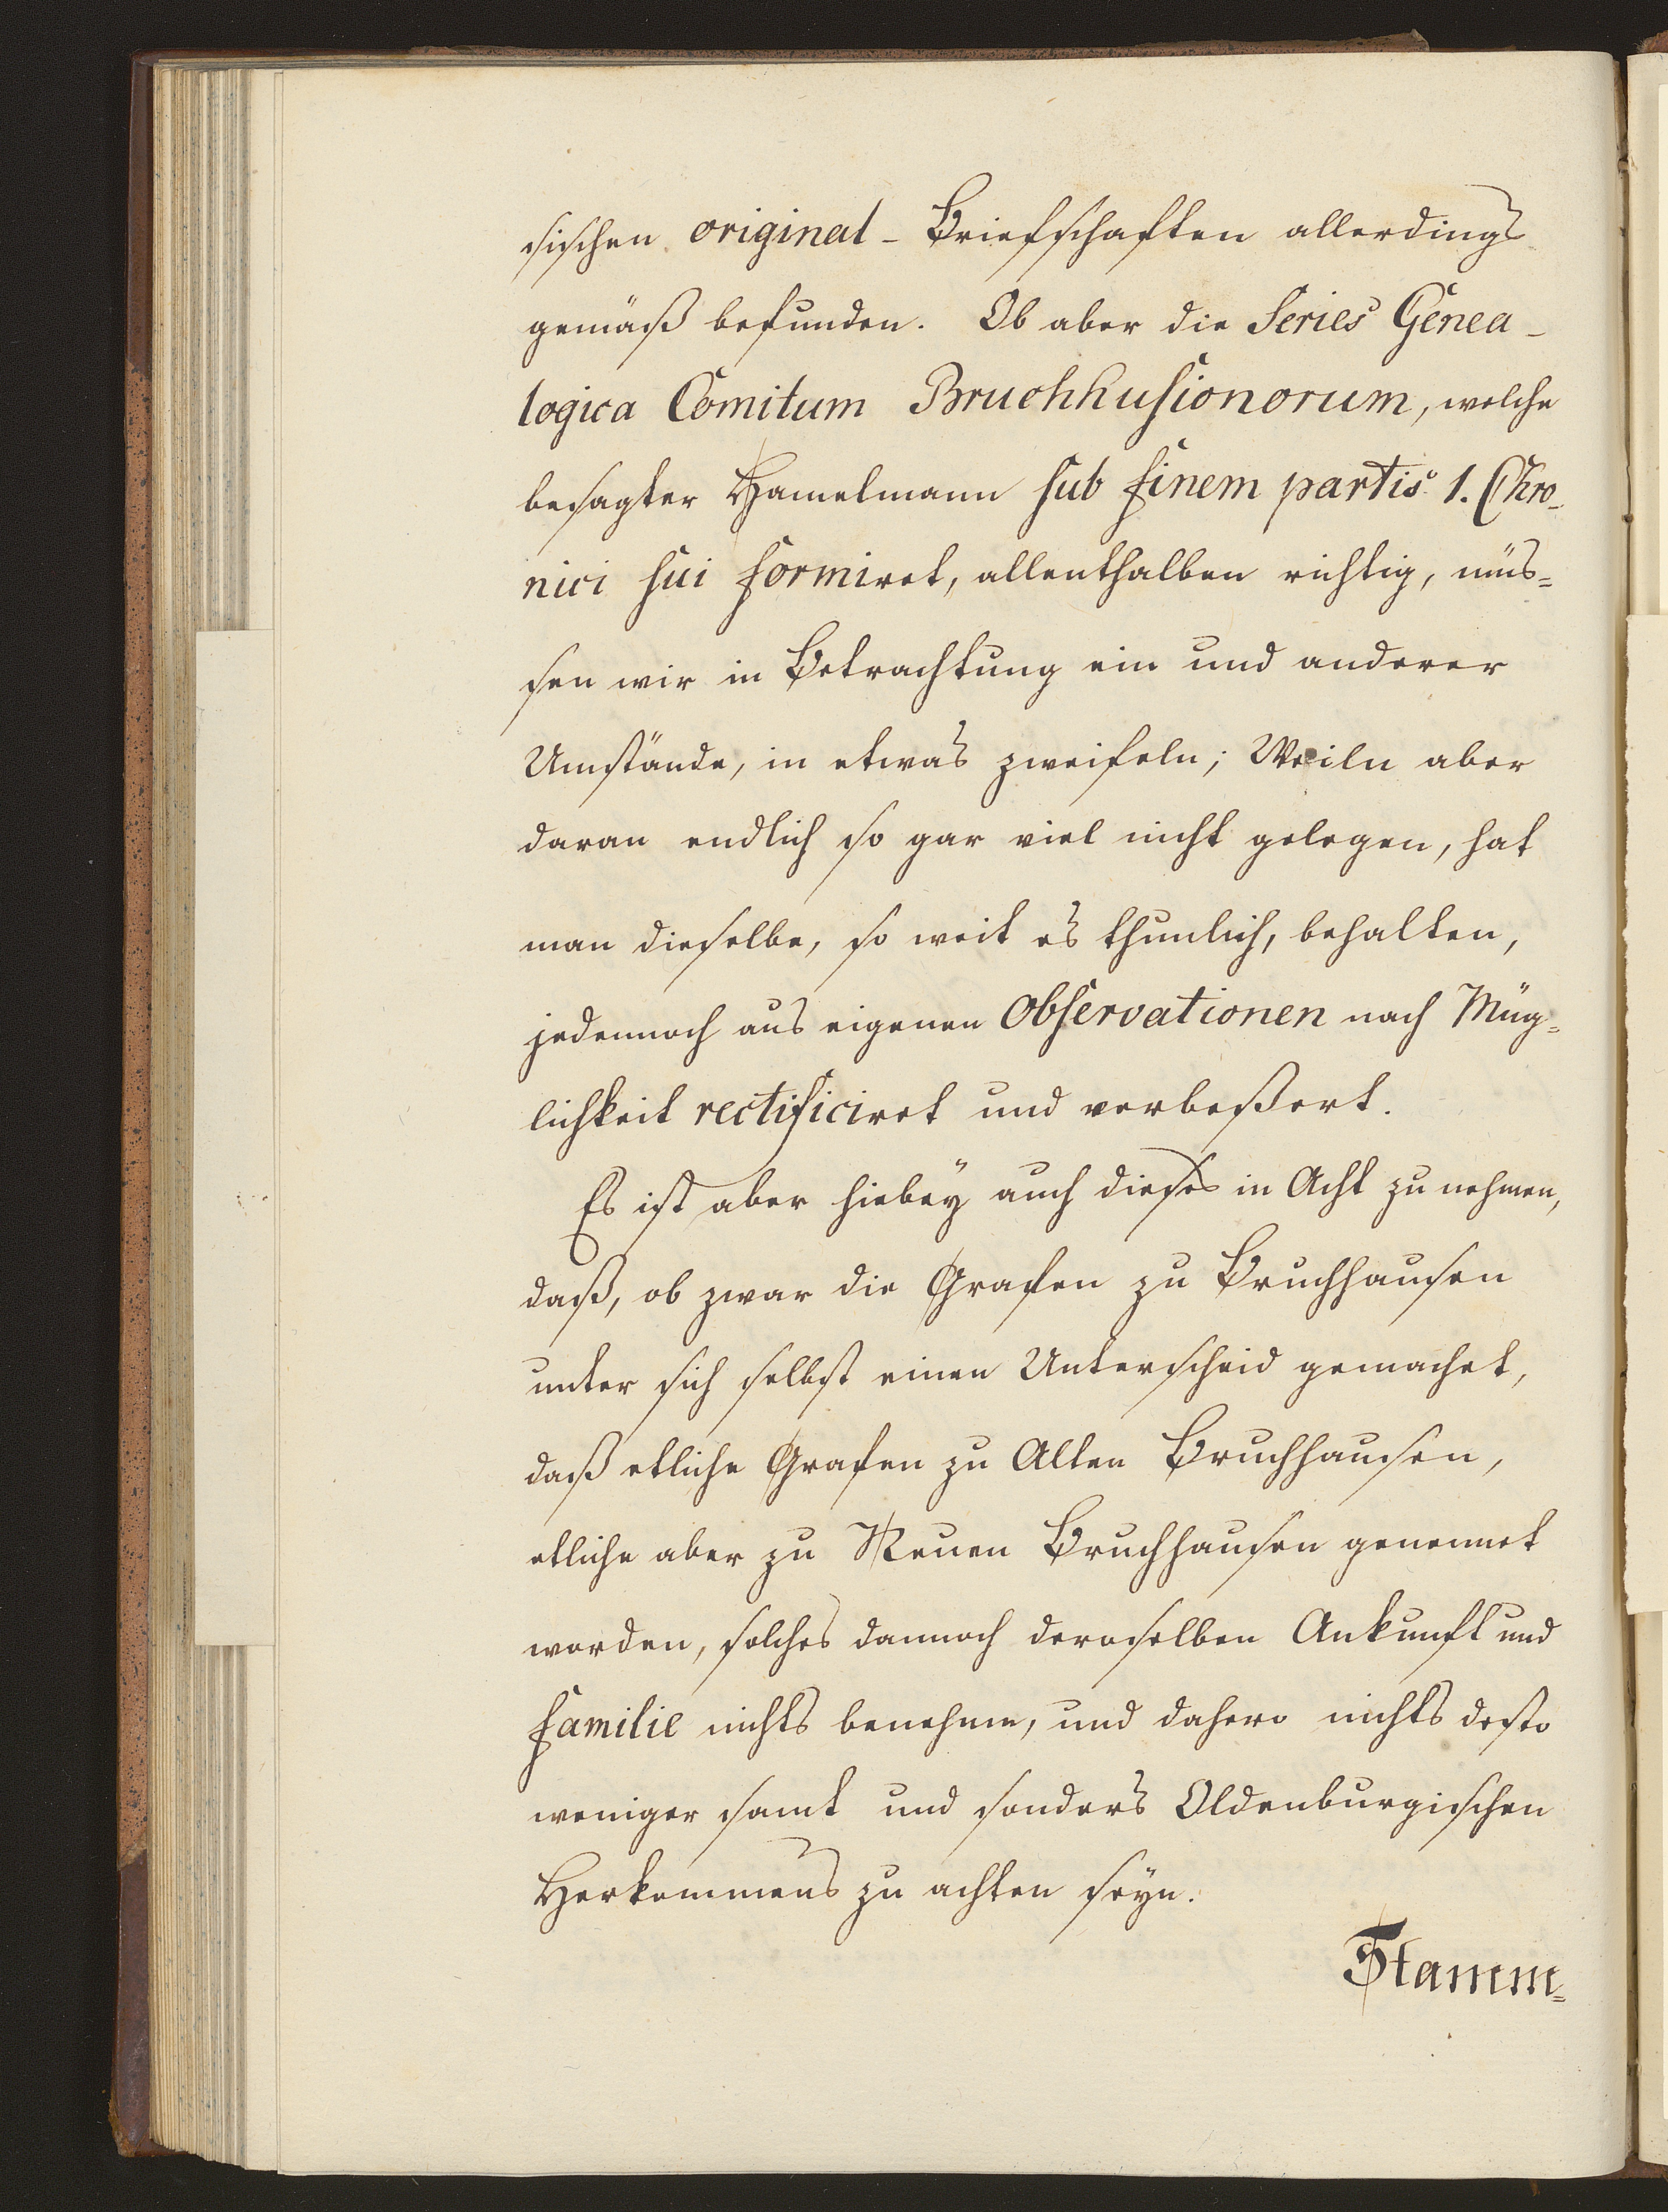 sischen original-Briefschaften allerdings
gemäß befunden. Ob aber die Series Genea-
logica Comitum Bruchhusionorum, welche
besagter Hamelmann sub finem partis 1. Chro-
nici sui formiret, allenthalben richtig, müs=
sen wir in Betrachtung ein und anderer
Umstände, in etwas zweifeln; Weiln aber
daran endlich so gar viel nicht gelegen, hat
man dieselbe, so weit es thunlich, behalten,
jedennoch aus eigenen Observationen nach Müg=
lichkeit rectificiret und verbeßert.
Es ist aber hiebey auch dieses in Acht zu nehmen,
daß, ob zwar die Grafen zu Bruchhausen
unter sich selbst einen Unterscheid gemachet,
daß etliche Grafen zu Alten Bruchhausen,
etliche aber zu Neuen Bruchhausen genennet
worden, solches dannoch deroselben Ankunft und
familie nichts benehme, und dahero nichts desto
weniger samt und sonders Oldenburgischen
Herkommens zu achten seyn.
Stamm=